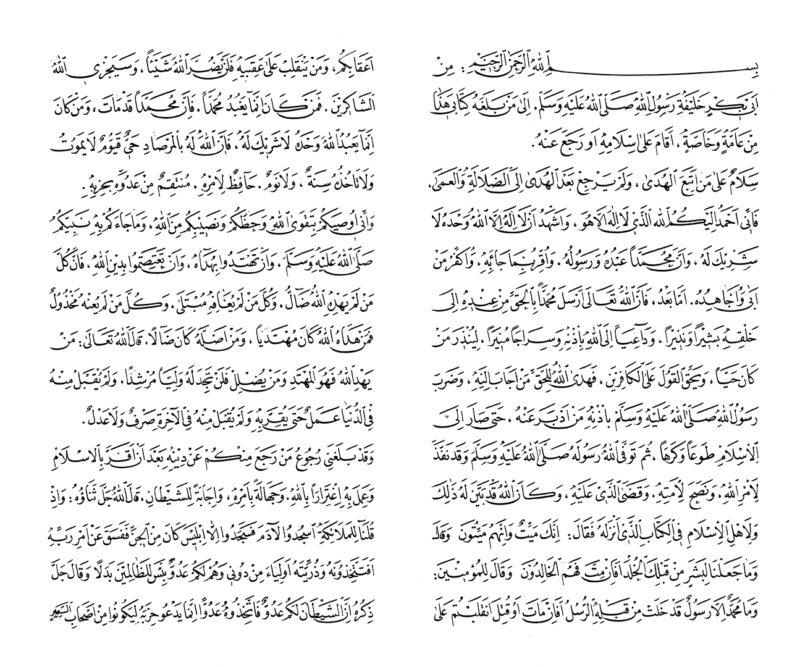 بسم الله الرحمن الرحيم: من
أبي بكر خليفة رسول الله صلى الله عليه وسلم. إلى من بلغه كتابي هذا
من عامة وخاصة. أقام على إسلامه أو رجع عنه.
سلام على من اتبع الهدى. ولم يرجع بعد الهدى إلى الضلالة والعمى.
فإني أحمد إليكم الله الذي لا إله إلا هو. وأشهد أن لا إله إلا الله وحده لا
شريك له. وأن محمداً عبده ورسوله. وأقر بما جاء به. وأكفر من
أبى وأجاهده. أما بعد، فإن الله تعالى أرسل محمداً بالحق من عنده إلى
خلقه بشيراً ونذيراً. وداعياً إلى الله بإذنه وسراجاً منيراً. لينذر من
كان حياً. ويحق القول على الكافرين. فهدى الله للحق من أجاب إليه. وضرب
رسول الله صلى الله عليه وسلم بإذنه من أدبر عنه. حتى صار إلى
الإسلام طوعاً وكرهاً. ثم توفى الله رسوله صلى الله عليه وسلم وقد نفذ
لأمر الله. ونصح لأمته. وقضى الذي عليه. وكان الله قد بين له ذلك
ولأهل الإسلام في الكتاب الذي أنزله فقال: إنك ميت وإنهم ميتون وقال
وما جعلنا لبشر من قبلك الخلد أفإن مت فهم الخالدون وقال للمؤمنين:
وما محمد إلا رسول قد خلت من قبله الرسل أفإن مات أو قتل انقلبتم على
أعقابكم. ومن ينقلب على عقبيه فلن يضر الله شيئاً. وسيجزي الله
الشاكرين. فمن كان إنما يعبد محمداً. فإن محمداً قد مات. ومن كان
إنما يعبد الله وحده لا شريك له. فإن الله له بالمرصاد حي قيوم لا يموت
ولا تأخذه سنة. ولا نوم. حافظ لأمره. منتقم من عدوه بحزبه.
وإني أوصيكم بتقوى الله وحظكم ونصيبكم من الله. وما جاءكم به نبيكم
صلى الله عليه وسلم. وأن تهتدوا بهداه. وأن تعتصموا بدين الله. فإن كل
من لم يهده الله ضال. وكل من لم يعافه مبتلى. وكل من لم يعنه مخذول
فمن هداه الله كان مهتدياً. ومن أضله كان ضالا. قال الله تعالى: من
يهد الله فهو المهتد ومن يضلل فلن تجد له ولياً مرشداً. ولم يقبل منه
في الدنيا عمل حتى يقر به ولم يقبل منه في الآخرة صرف ولا عدل.
وقد بلغني رجوع من رجع منكم عن دينه بعد أن أقر بالإسلام
وعمل به اغتراراً بالله. وجهالة بأمره. وإجابة للشيطان. قال الله جل ثناؤه: وإذ
قلنا للملائكة اسجدوا لآدم فسجدوا إلا إبليس كان من الجن ففسق عن أمر ربه
أفتتخذونه وذريته أولياء من دوني وهم لكم عدو بئس للظالمين بدلا وقال جل
ذكره إن الشيطان لكم عدو فاتخذوه عدواً إنما يدعو حزبه ليكونوا من أصحاب السعير